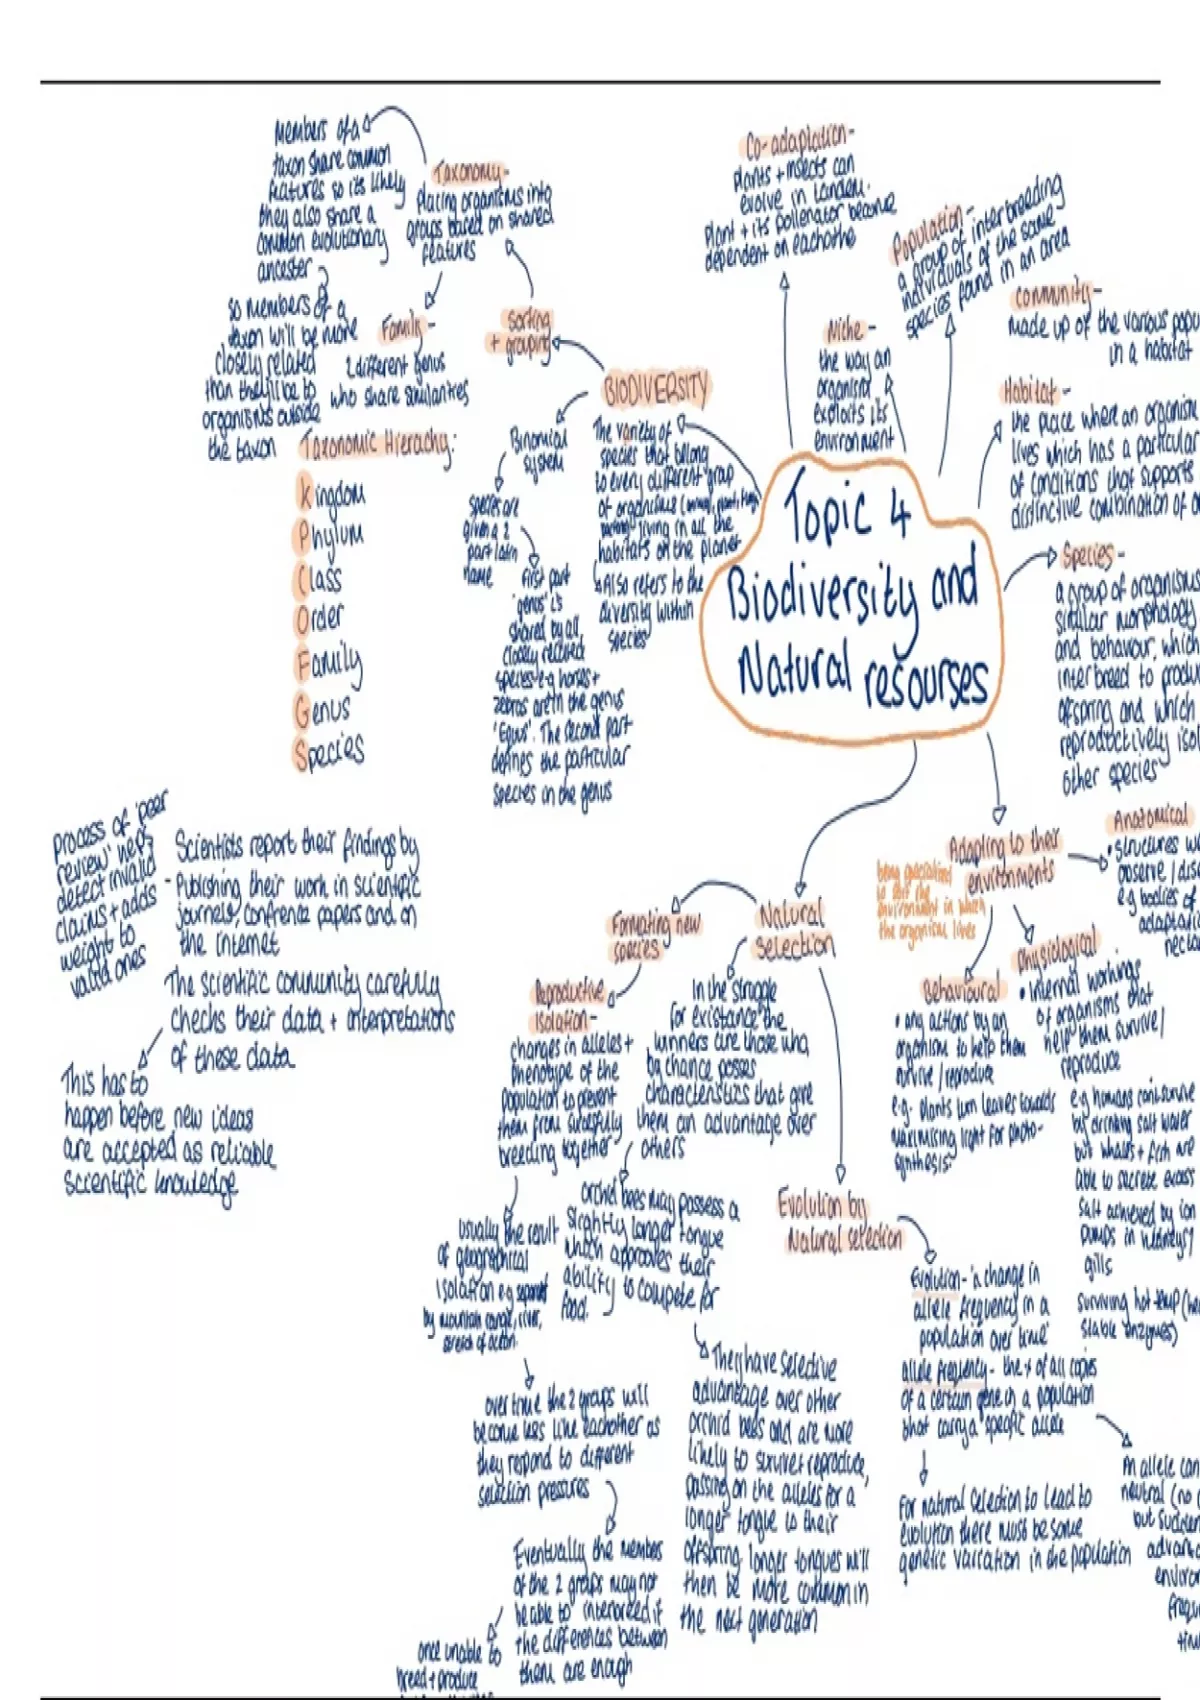 Members of a
taxon share common
features so its likely
they also share a
common evolutionary
ancester
so members of a
taxon will be more
closely related
than they'll be to
organisms outside
the taxon
Taxonomy-
placing organisms into
groups based on shared
features
Family-
2 different genus
who share similarities
Sorting
+ grouping
Taxonomic Hierachy:
Kingdom
Phylum
Class
Order
Family
Genus
Species
BIODIVERSITY
Binomial
system
species are
given a 2
part latin
name
first part
'genus' is
shared by all
closely related
species e.g horses +
zebras are in the genus
'Equus'. The second part
defines the particular
species in the genus
The variety of
species that belong
to every different group
of organisms
living in all the
habitats on the planet
Also refers to the
diversity within
species
Co-adaptation-
plants + insects can
evolve in tandem.
plant + its pollenator become
dependent on eachothe
Population-
a group of interbreeding
individuals of the same
species found in an area
Niche-
the way an
organism
exploits its
environment
Community-
made up of the various popu
in a habitat
Habitat-
the place where an organism
lives which has a particular
of conditions that supports
distinctive combination of
Topic 4
Biodiversity and
Natural resourses
Species-
a group of organisms
similar morphology
and behaviour, which
interbreed to produ
offspring and which
reproductively isol
other species
process of 'peer
review'
detect invalid
claims + adds
weight to
valid ones
Scientists report their findings by
- Publishing their work in scientific
journels, confrence papers and on
the internet
The scientific community carefully
checks their data + interpretations
of these data
This has to
happen before new ideas
are accepted as reliable
scientific knowledge
Natural
selection
Formating new
species
Reproductive
isolation-
changes in alleles +
phenotype of the
population to prevent
them from
breeding together
usually the result
of geographical
isolation e.g
by mountain range, river,
stretch of ocean
over time the 2 groups will
become less like eachother as
they respond to different
selection pressures
Eventually the members
of the 2 groups may not
be able to interbreed if
the differences between
them are enough
once unable to
breed + produce
In the struggle
for existance the
winners are those who
by chance posses
characteristics that give
them an advantage over
others
orchid bees may possess a
slightly longer tongue
which their
ability to compete for
food.
They have selective
advantage over other
orchid bees and are more
likely to survive + reproduce,
passing on the alleles for a
longer tongue to their
offspring. longer tongues will
then be more common in
the next generation
Evolution by
Natural selection
Evolution- 'a change in
allele frequency in a
population over time'
allele frequency- the of all copies
of a certain gene in a population
that carry a specific allele
For natural selection to lead to
evolution there must be some
genetic variation in the population
An allele can
neutral (no
but sudden
advanta
environ
frequ
tim
Adapting to their
environments
being specialised
to suit the
environment in which
the organism lives
Behavioural
• any actions by an
organism to help them
survive / reproduce
e.g. plants turn leaves towards
maximising light for photo-
synthesis
Physiological
• internal workings
of organisms that
help them survive /
reproduce
e.g humans cant survive
by drinking salt water
but whales + fish are
able to
salt achieved by ion
pumps in kidneys /
gills
surviving hot temp
stable enzymes)
Anatomical
• structures we
observe / diss
e.g bodies of
adaptatio
necta